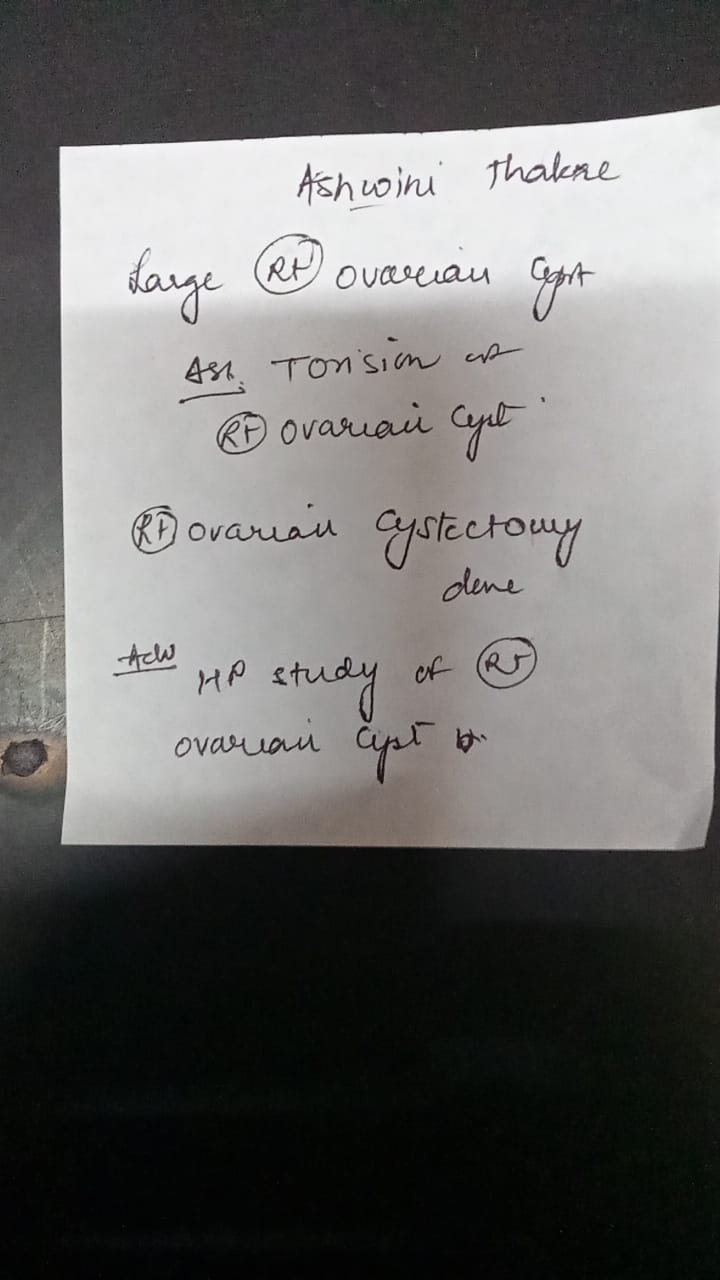 Ashwini Thakre
Large Rt ovarian Cyst
Torsion of
Rt ovarian Cyst
Rt ovarian Cystectomy
done
Adv
HP study of Rt
ovarian Cyst